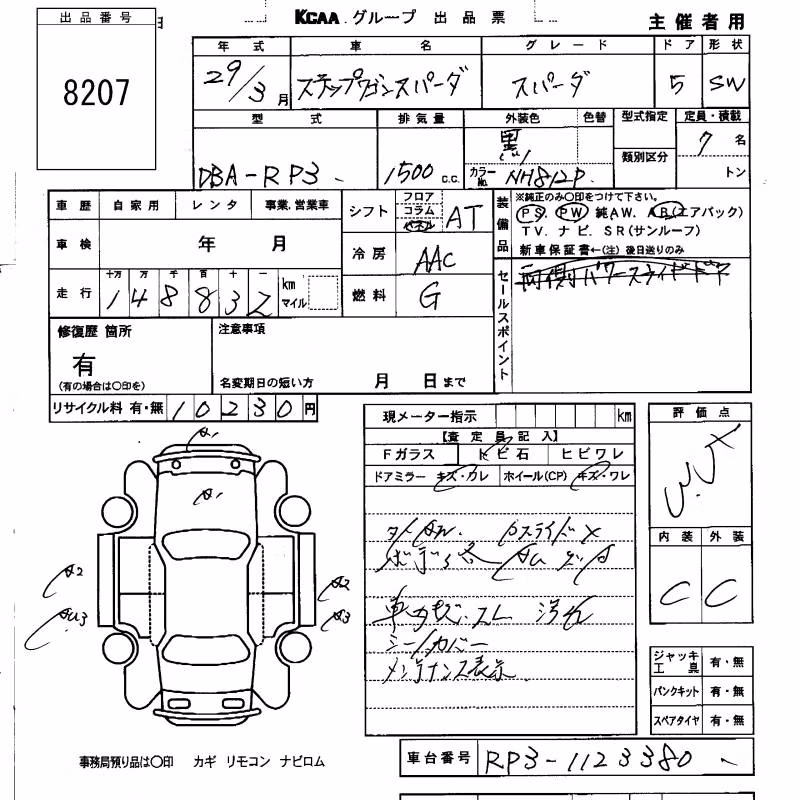 出品番号
8207
KCAA グループ 出品票
主催者用
年式 車名 グレード ドア 形状
29/3月 ステップワゴンスパーダ スパーダ 5 SW
型式 排気量 外装色 色替 型式指定 定員・積載
DBA-RP3 1500 c.c. 黒 カラーNo. NH812P 類別区分 7名
トン
車歴 自家用 レンタ 事業,営業車
シフト フロア コラム パネル AT
装備品
※純正のみ〇印をつけて下さい。
PS PW 純AW. AB(エアバック)
TV. ナビ. SR(サンルーフ)
新車保証書←(注) 後日送りのみ
車検 年 月
冷房 AAC
セールスポイント
両側パワースライドドア
走行 十万 万 千 百 十 一 km マイル
148832
燃料 G
修復歴 箇所
有
(有の場合は〇印を)
注意事項
名変期日の短い方 月 日まで
リサイクル料 有・無 10230円
現メーター指示 km
【査定員記入】
Fガラス トビ石 ヒビワレ
ドアミラー キズ・カレ ホイール(CP) キズ・ワレ
評価点
内装 外装
C C
A1
A1
A2
AU3
A2
A3
シートカバー
メンテナンス表示
ジャッキ 工具 有・無
パンクキット 有・無
スペアタイヤ 有・無
事務局預り品は〇印 カギ リモコン ナビロム
車台番号 RP3-1123380